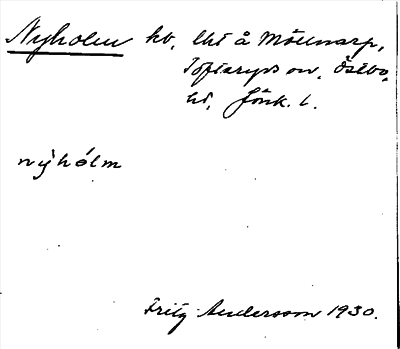 Nyholm hv, lht å Möllnarp,
Tofteryds sn. Östbo,
hd, Jönk. l.
nỳhólm
Fritz Andersson 1930.